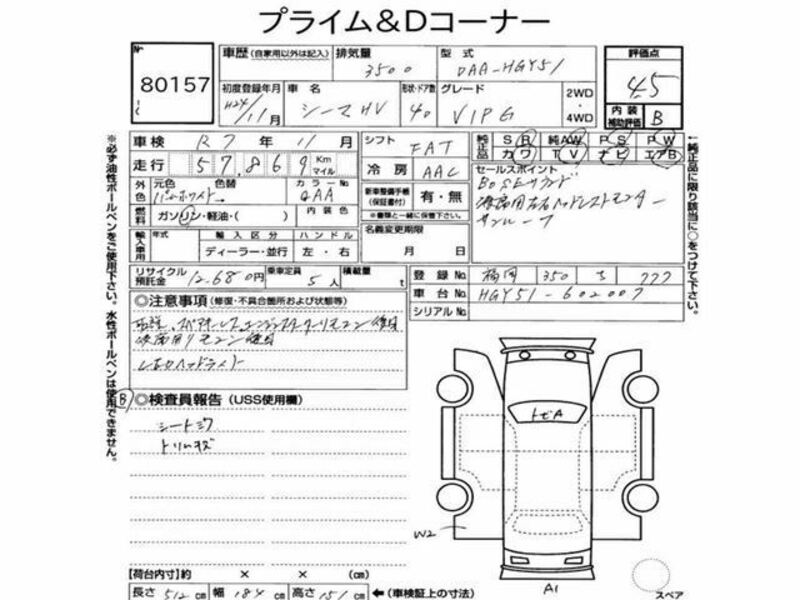 プライム&Dコーナー
No
80157
車歴 (自家用以外は記入) 排気量 型式 評価点
3500 DAA-HGY51 4.5
初度登録年月 車名 形状・ドア数 グレード 2WD 4WD 内装補助評価 B
H24/11月 シーマHV 4D VIP G
車検 R7年11月 シフト FAT
純正品 SR 純AW PS PW
カワ TV ナビ エアB
走行 57,869 Km マイル 冷房 AAC
セールスポイント
BOSEサウンド
サンルーフ
外色 元色 色替 カラーNo
QAA
新車整備手帳(保証書付) 有・無
※書類と一緒に保管下さい。
燃料 ガソリン・軽油・( ) 内装色
名義変更期限
月 日
輸入車用 年式 輸入区分 ハンドル
ディーラー・並行 左・右
リサイクル預託金 12,680円 乗車定員 5人 積載量 t
登録No. 福岡 350 ち 777
車台No. HGY51-602007
シリアルNo.
◎注意事項 (修復・不具合箇所および状態等)
B ◎検査員報告 (USS使用欄)
シートシワ
トリムキズ
トビA
W2
A1
スペア
【荷台内寸】約 × × (cm)
長さ 512 cm 幅 184 cm 高さ 151 cm ←(車検証上の寸法)
※必ず油性ボールペンをご使用下さい。水性ボールペンは使用できません。
↑純正品に限り該当に○をつけて下さい。